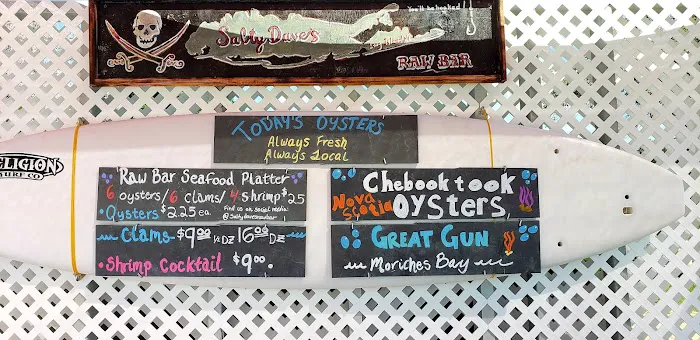 You'll be hooked!
Salty Dave's
RAW BAR
RELIGION
SURF CO.
TODAY'S OYSTERS
Always Fresh
Always Local
Raw Bar Seafood Platter
6 oysters/6 clams/4 shrimp $25
Oysters $2.25 ea.
Find us on social media:
@Saltydavesrawbar
Clams $9.00 1/2 DZ 16.00 DZ
Shrimp Cocktail $9.00
Chebooktook
Nova Scotia
Oysters
GREAT GUN
Moriches Bay